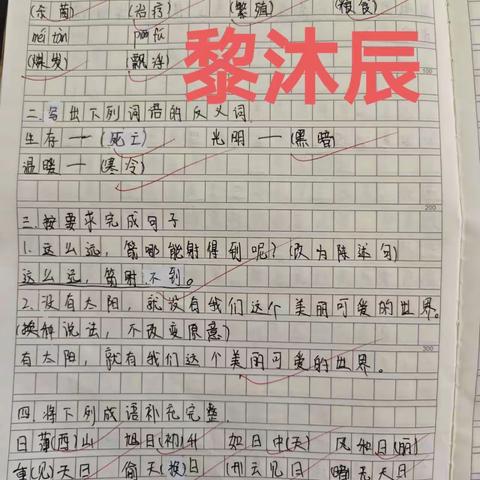 (杀菌) (治疗) (繁殖) (粮食)
méi tàn
(煤炭) (飘浮)
黎沐辰
二.写出下列词语的反义词.
生存—(死亡) 光明—(黑暗)
温暖—(寒冷)
三.按要求完成句子
1.这么远,箭哪能射得到呢?(改为陈述句)
这么远,箭射不到。
2.没有太阳,就没有我们这个美丽可爱的世界。
(换种说法,不改变原意)
有太阳,就有我们这个美丽可爱的世界。
四.将下列成语补充完整.
日薄(西)山 旭日(初)升 如日中(天) 风和日(丽)
重(见)天日 偷天(换)日 (开)云见日 (暗)无天日
100
200
300